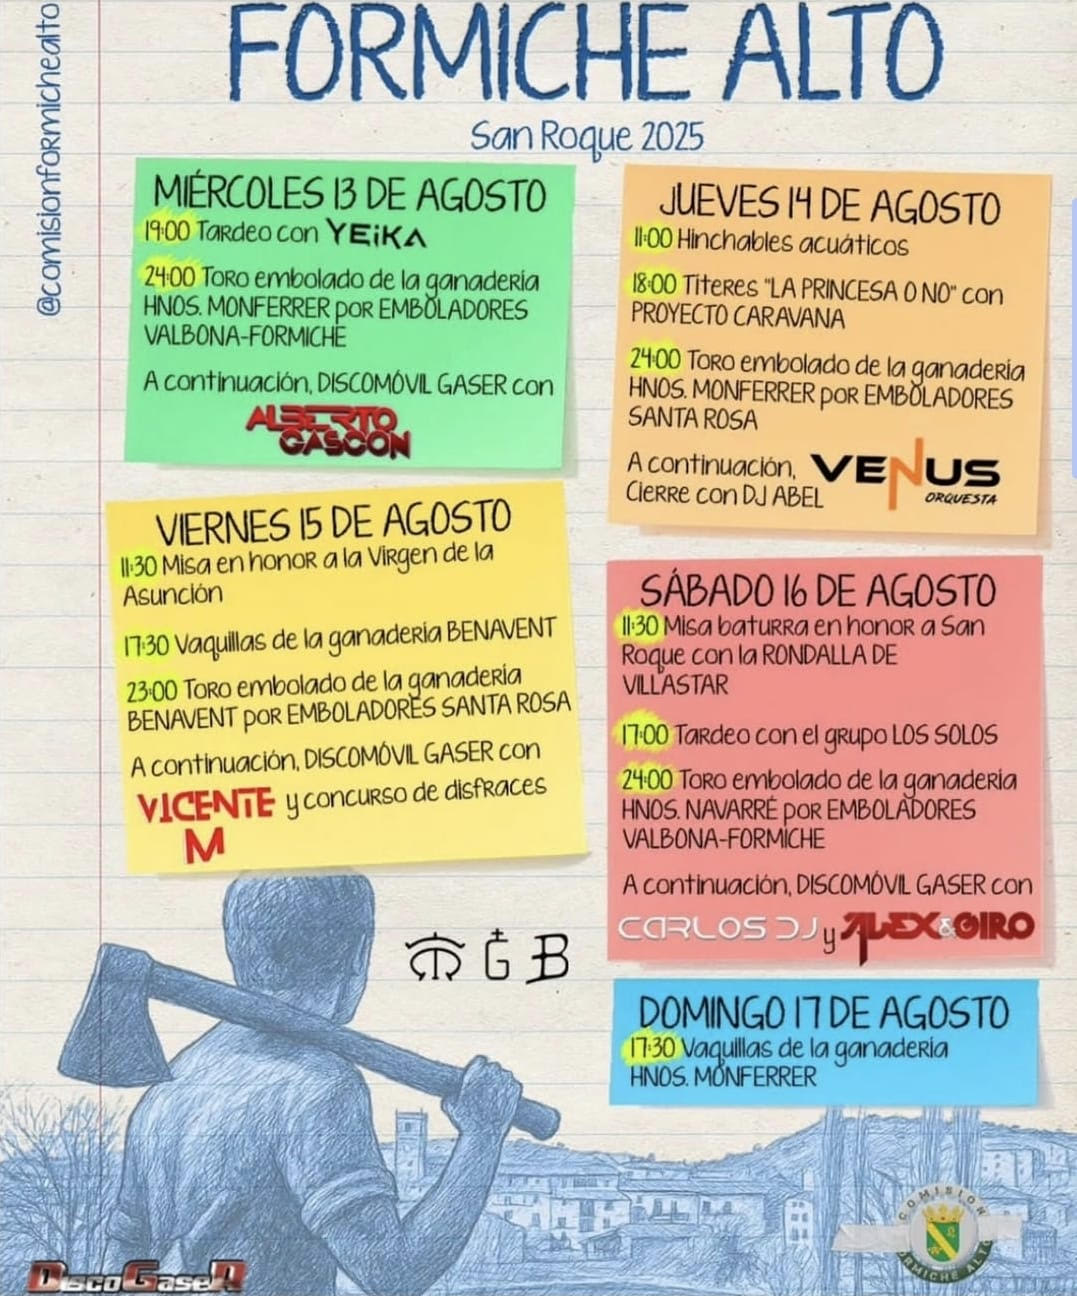 @comisionformichealto
FORMICHE ALTO
San Roque 2025
MIÉRCOLES 13 DE AGOSTO
19:00 Tardeo con YEiKA
24:00 Toro embolado de la ganadería
HNOS. MONFERRER por EMBOLADORES
VALBONA-FORMICHE
A continuación, DISCOMÓVIL GASER con
ALBERTO
GASCON
JUEVES 14 DE AGOSTO
11:00 Hinchables acuáticos
18:00 Títeres "LA PRINCESA O NO" con
PROYECTO CARAVANA
24:00 Toro embolado de la ganadería
HNOS. MONFERRER por EMBOLADORES
SANTA ROSA
A continuación, VENUS
ORQUESTA
Cierre con DJ ABEL
VIERNES 15 DE AGOSTO
11:30 Misa en honor a la Virgen de la
Asunción
17:30 Vaquillas de la ganadería BENAVENT
23:00 Toro embolado de la ganadería
BENAVENT por EMBOLADORES SANTA ROSA
A continuación, DISCOMÓVIL GASER con
VICENTE y concurso de disfraces
M
SÁBADO 16 DE AGOSTO
11:30 Misa baturra en honor a San
Roque con la RONDALLA DE
VILLASTAR
17:00 Tardeo con el grupo LOS SOLOS
24:00 Toro embolado de la ganadería
HNOS. NAVARRÉ por EMBOLADORES
VALBONA-FORMICHE
A continuación, DISCOMÓVIL GASER con
CARLOS DJ y ALEX & GIRO
DOMINGO 17 DE AGOSTO
17:30 Vaquillas de la ganadería
HNOS. MONFERRER
G B
DISCOGASER
COMISION
FORMICHE ALTO